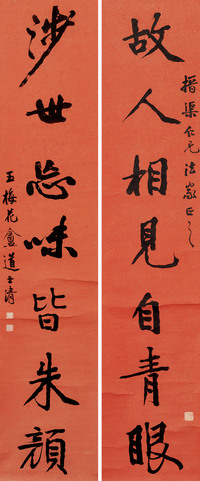 搢渠仁兄法家正之
故人相見自青眼
涉世忘味皆朱顏
玉梅花盦道士清